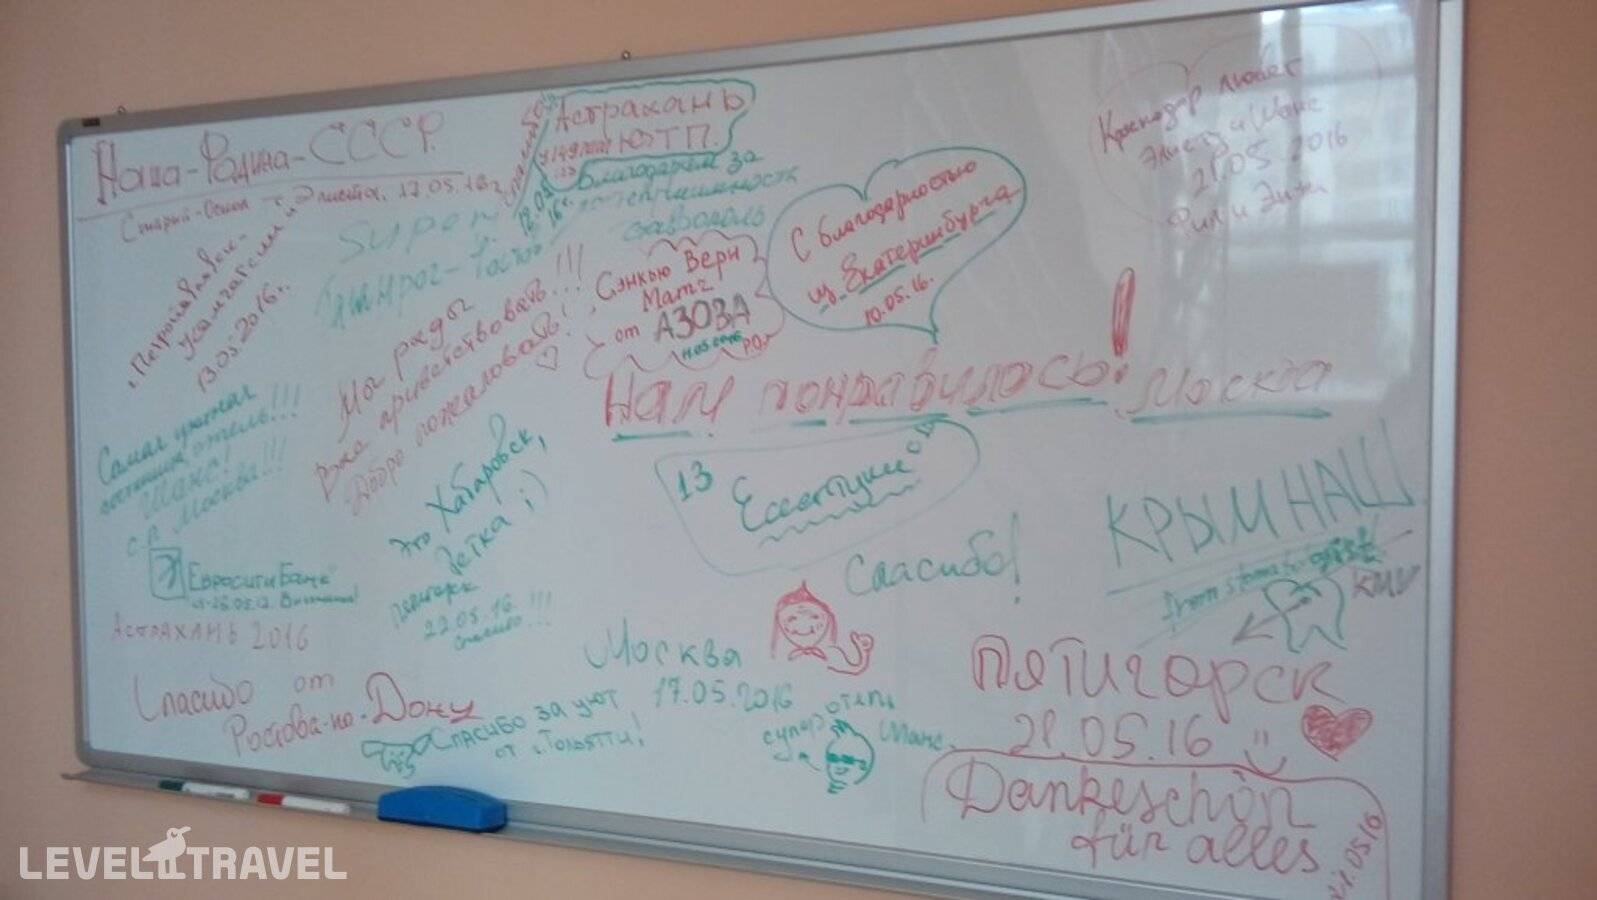 Наша-Родина-СССР
Старый-Оскол - г. Элиста. 17.05.16г.
Астрахань
ЮТП.
Благодарим за
Super
13.05.2016г.
Мы рады
Вас приветствовать!!!
Добро пожаловать!
Сэнкью Вери
Матч
от АЗОВА
РО.
С благодарностью
из Екатеринбурга
10.05.16.
Краснодар любит
Элисту и Шанс
21.05 2016
Нам понравилось! Москва
Самая уютная
отель!!!
Шанс!
Москва!!!
Это Хабаровск,
детка ;)
Пятигорск
22.05.16.
Спасибо!!!
13
Ессентуки
Спасибо!
КРЫМ НАШ
КМV
ЕвроситиБанк
АСТРАХАНЬ 2016
Спасибо от
Ростова-на-Дону
Спасибо за уют
от г. Тольятти!
Москва
17.05.2016
супер отель
Шанс
ПЯТИГОРСК
21.05.16
Dankeschön
für alles
21.05.16
LEVEL TRAVEL